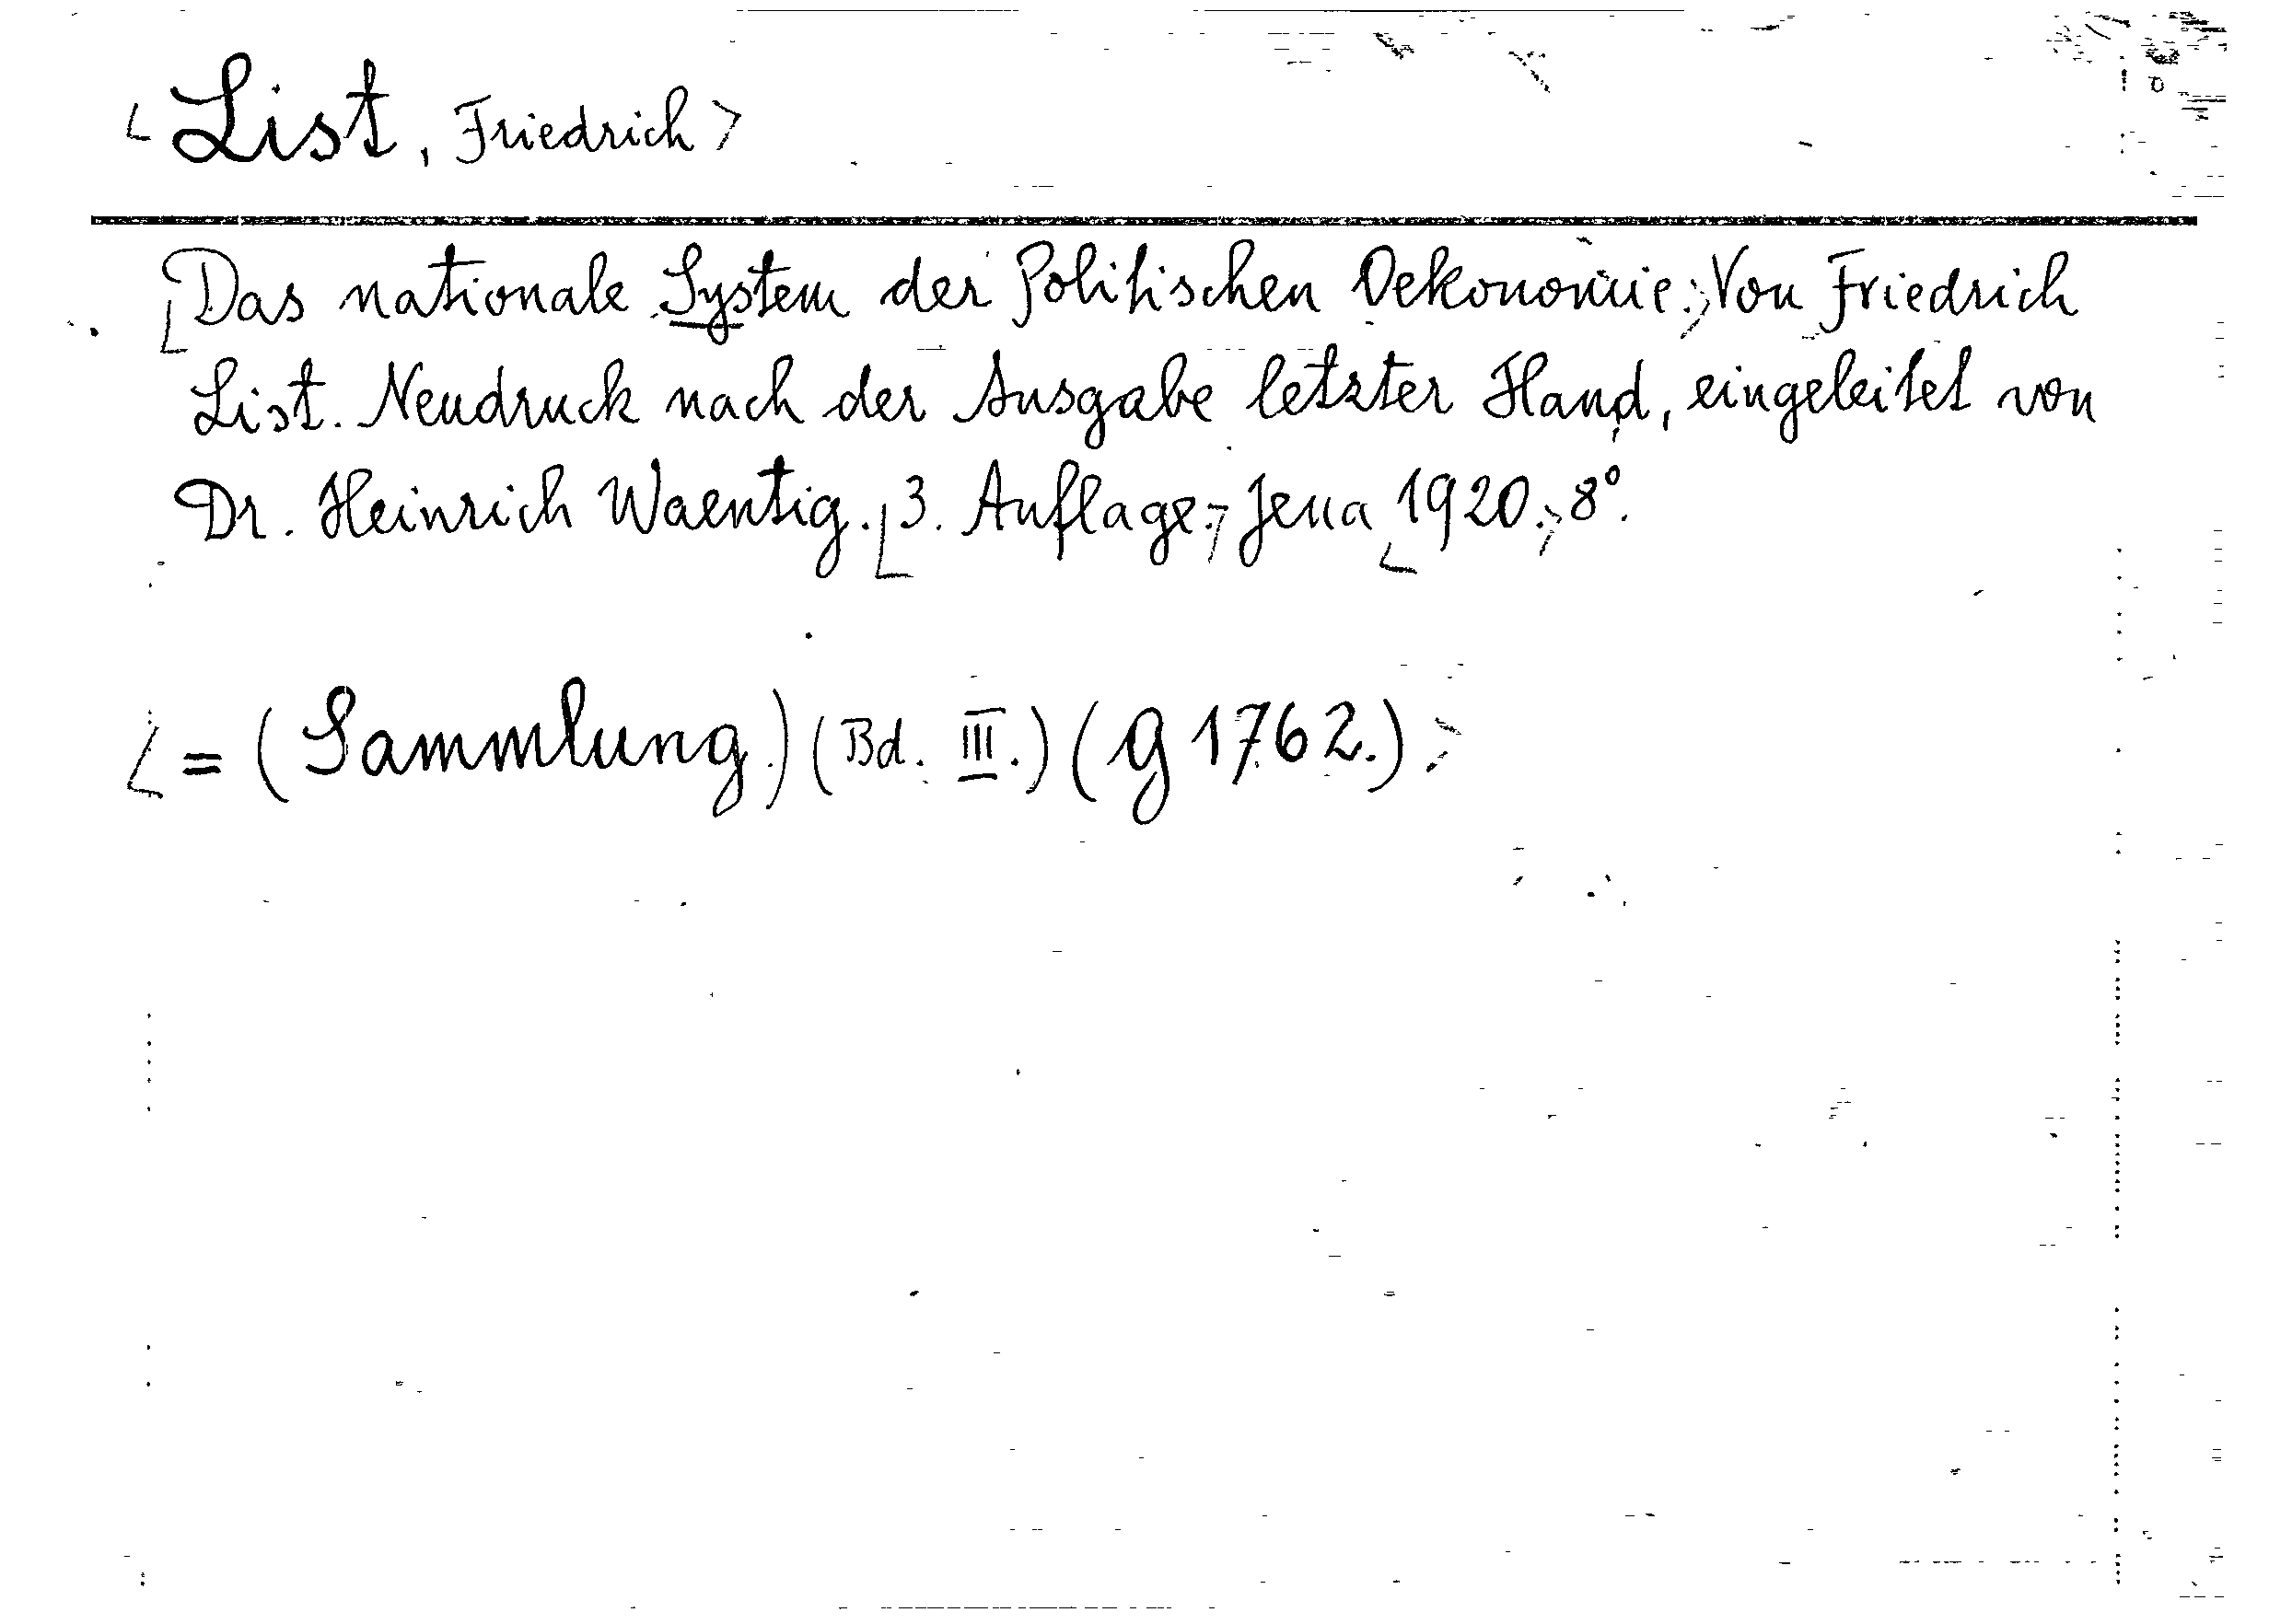 <List, Friedrich>
[Das nationale System der Politischen Oekonomie.> Von Friedrich
List. Neudruck nach der Ausgabe letzter Hand, eingeleitet von
Dr. Heinrich Waentig. [3. Auflage.] Jena <1920.> 8°.
<= (Sammlung.) (Bd. III.) (g 1762.)>